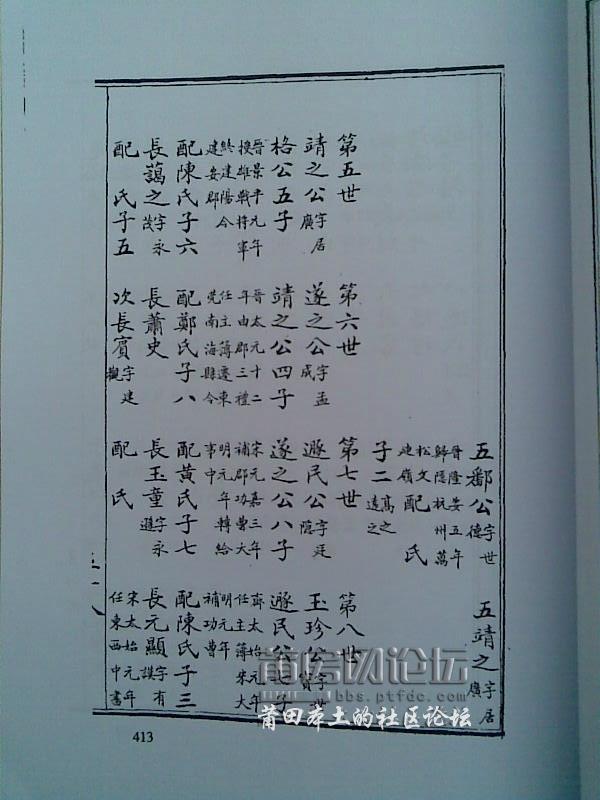 五鄱公字世德
晉隆安五年
歸隱杭州萬
松文配氏
建嶺
子二高之遠之
五靖之字居廣
第五世
靖之公字居廣
格公五子
晉景平元年
授雄戟將軍
終建陽令
建安郡
配陳氏子六
長藹之字永茂
配 氏子五
第六世
遂之公字孟成
靖之公四子
晉太元十二
年由郡三禮
任主簿遷東
莞南海縣令
配鄭氏子八
長蕭史
次長賓字建觀
第七世
遯民公字廷隱
遂之公八子
宋元嘉三年
補郡功曹大
明元年轉給
事中
配黃氏子七
長玉童字永遜
配 氏
第八世
玉珍公字世寶
遯民公 子
齊太始元年
任主簿宋大
明元年
補功曹
配陳氏子三
長元顯字有謨
宋太始元年
任東西中書
413
莆房网论坛
bbs.ptfdc.com
莆田本土的社区论坛